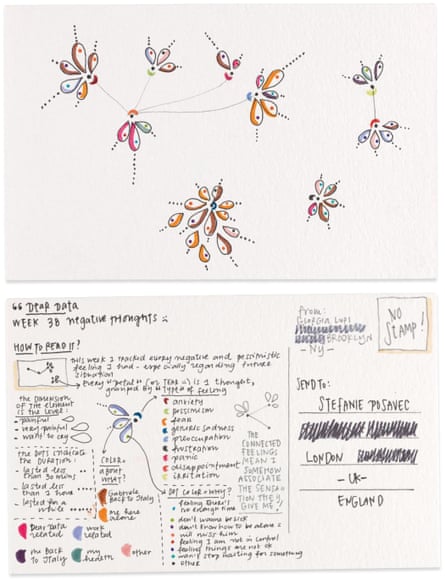 DEAR DATA
WEEK 38 negative thoughts
HOW TO READ IT?
this week I tracked every negative and pessimistic
feeling I had - especially regarding future
situation
every "petal" (or TEAR) is 1 thought,
grouped by type of feeling
THE DIMENSION
OF THE ELEMENT
IS THE LEVEL:
painful
very painful
want to cry
THE DOTS INDICATE
THE DURATION:
lasted less
than 30 mins
lasted less
than 1 hour
lasted for a
while
COLOR
ABOUT
WHAT?
Gabriele
Back to Italy
me here
alone
Dear Data
related
work
related
me Back
to Italy
my
health
other
anxiety
pessimism
fear
generic sadness
preoccupation
frustration
panic
disappointment
irritation
DOT COLOR = WHY?
feeling there's
no enough time
don't wanna be sick
don't know how to be alone
will miss him
feeling I am not in control
feeling things are not ok
won't stop waiting for something
other
THE
CONNECTED
FEELINGS
MEAN I
SOMEHOW
ASSOCIATE
THE SENSA-
TION THEY
GIVE ME!
from:
GIORGIA LUPI
BROOKLYN
- NY -
NO
STAMP!
SEND TO:
STEFANIE POSAVEC
LONDON
- UK -
ENGLAND